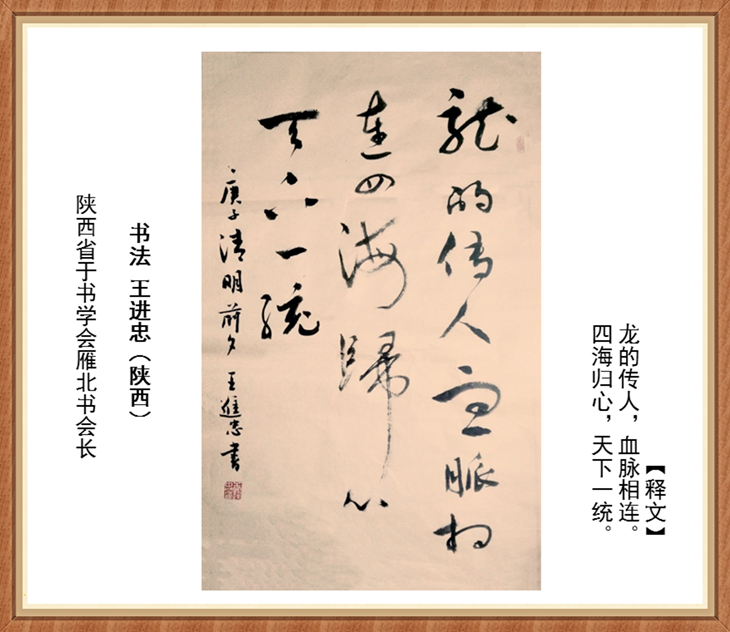 【释文】
龙的传人，血脉相连。
四海归心，天下一统。
龍的传人血脈相
连四海歸心
天下一統
庚子清明前夕王進忠書
书法 王进忠（陕西）
陕西省于右学会雁北书会长